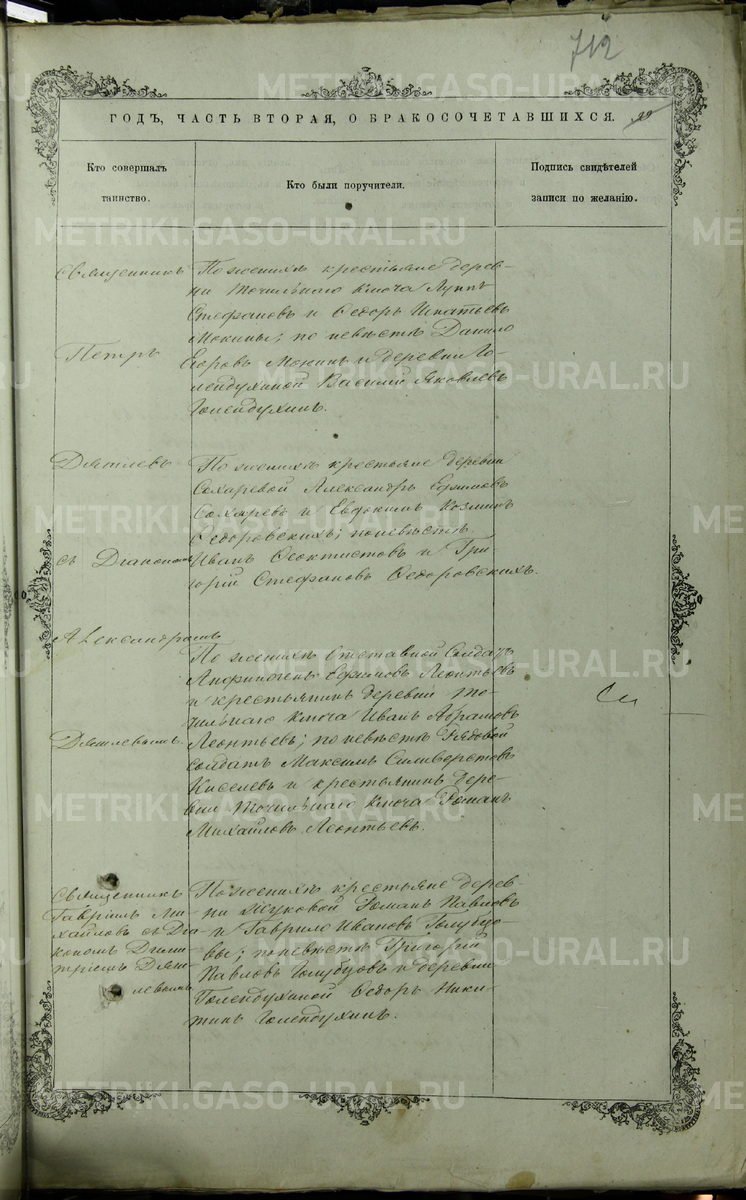 712
ГОДЪ, ЧАСТЬ ВТОРАЯ, О БРАКОСОЧЕТАВШИХСЯ.
Кто совершалъ
таинство.
Кто были поручители.
Подпись свидѣтелей
записи по желанію.
Священникъ
Петръ
Дягилевъ
съ Діакономъ
Александромъ
Дягилевымъ.
По женихѣ крестьяне дерев-
ни Точильнаго Ключа Луппъ
Стефановъ и Ѳедоръ Игнатьевъ
Мокины; по невѣстѣ Данило
Егоровъ Мокинъ и деревни Го-
лендухиной Василій Яковлевъ
Голендухинъ.
По женихѣ крестьяне деревни
Сохаревой Александръ Ефимовъ
Сохаревъ и Евдокимъ Козминъ
Ѳедоровскихъ; по невѣстѣ
Иванъ Ѳеоктистовъ и Гри
горій Стефановъ Ѳедоровскихъ.
По женихѣ Отставной Солдатъ
Ефимовъ Леонтьевъ
и крестьянинъ деревни То-
чильнаго Ключа Иванъ Абрамовъ
Леонтьевъ; по невѣстѣ Рядовой
солдатъ Максимъ Силиверстовъ
Киселевъ и крестьянинъ дере-
вни Точильнаго Ключа Романъ
Михайловъ Леонтьевъ.
Священникъ
Гавріилъ Ми-
хайловъ съ Діа
кономъ Дими-
тріемъ Дяги-
левымъ
По женихѣ крестьяне дерев-
ни Жуковой Романъ Павловъ
и Гаврило Ивановъ Голубцо-
вы; по невѣстѣ Григорій
Павловъ Голубцовъ и деревни
Голендухиной Ѳедоръ Ники-
тинъ Голендухинъ.
METRIKI.GASO-URAL.RU